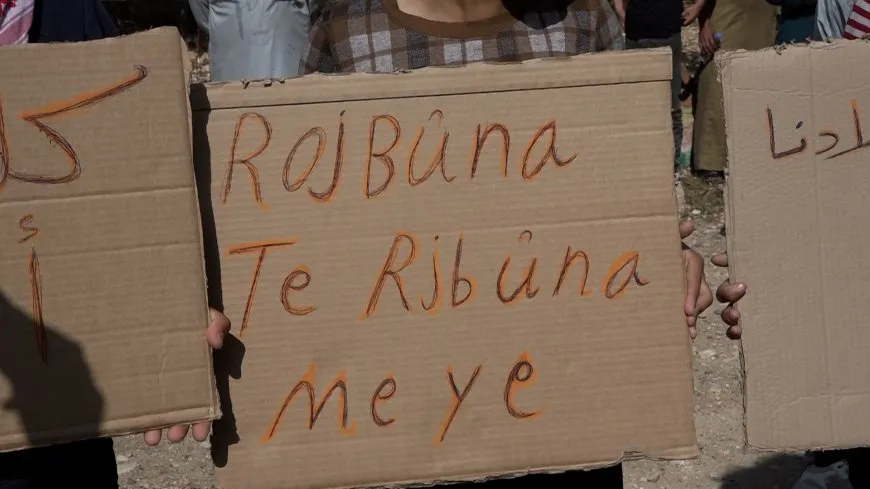 RojBûna
Te Rjbûna
Me ye
لادنا